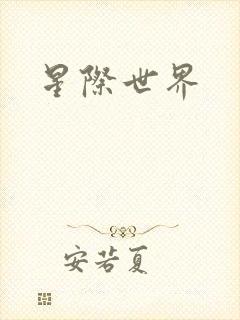 星際世界
安若夏